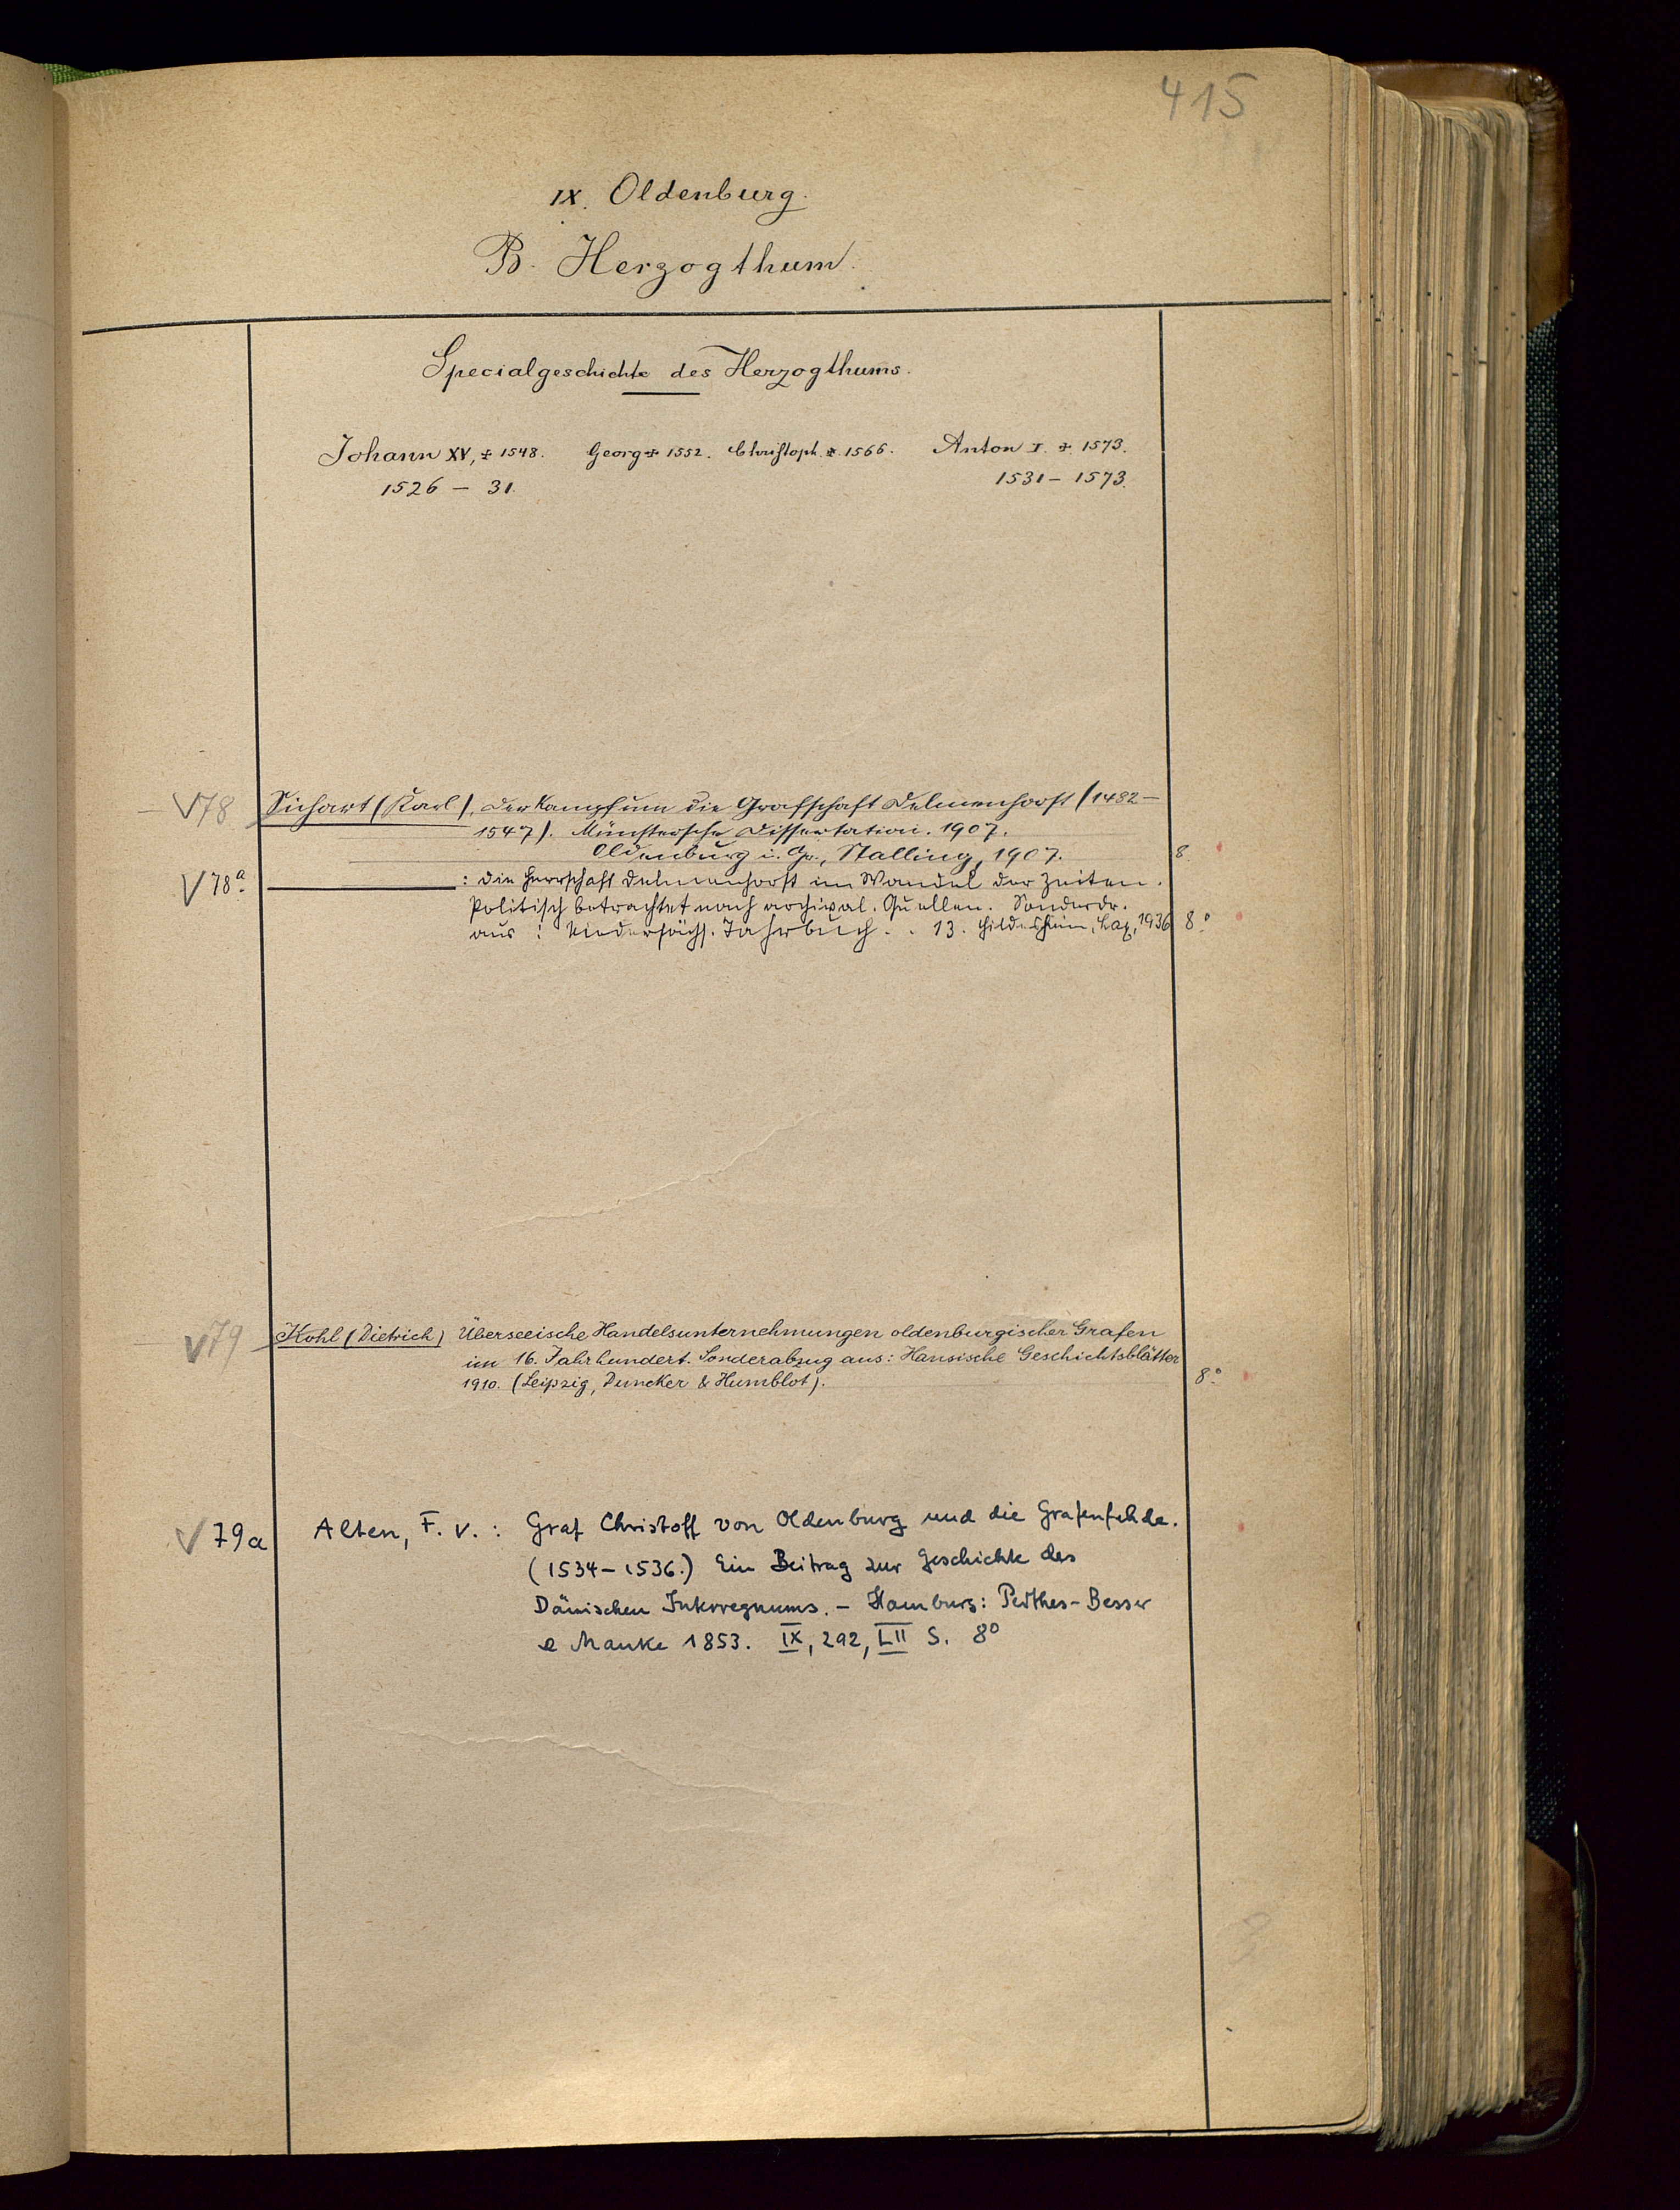 415
IX. Oldenburg.
B. Herzogthum.
Specialgeschichte des Herzogthums.
Johann XV, + 1548. Georg + 1552. Christoph + 1566. Anton I. + 1573.
1526 – 31. 1531 – 1573.
V 78 Sichart (Karl), Der Kampf um die Grafschaft Delmenhorst (1482–
1547). Münstersche Dissertation. 1907.
Oldenburg i. Gr., Stalling, 1907. 8.
V 78a ——— : Die Herrschaft Delmenhorst im Wandel der Zeiten.
Politisch betrachtet nach archival. Quellen. Sonderdr.
aus: Niedersächs. Jahrbuch. . 13. Hildesheim, Lax, 1936 8°
V 79 Kohl (Dietrich) Überseeische Handelsunternehmungen oldenburgischer Grafen
im 16. Jahrhundert. Sonderabzug aus: Hansische Geschichtsblätter
1910. (Leipzig, Duncker & Humblot). 8°
V 79a Alten, F. v.: Graf Christoff von Oldenburg und die Grafenfehde.
(1534–1536.) Ein Beitrag zur Geschichte des
Dänischen Interregnums. – Hamburg: Perthes-Besser
& Mauke 1853. IX, 292, LII S. 8°